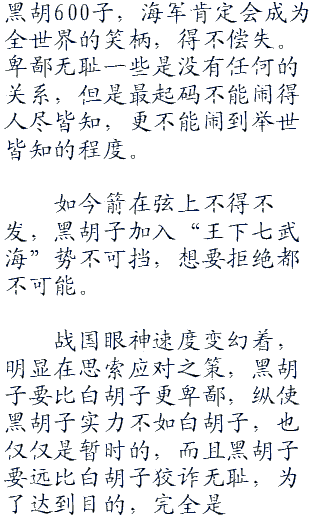 黑胡600子，海军肯定会成为
全世界的笑柄，得不偿失。
卑鄙无耻一些是没有任何的
关系，但是最起码不能闹得
人尽皆知，更不能闹到举世
皆知的程度。
如今箭在弦上不得不
发，黑胡子加入“王下七武
海”势不可挡，想要拒绝都
不可能。
战国眼神速度变幻着，
明显在思索应对之策，黑胡
子要比白胡子更卑鄙，纵使
黑胡子实力不如白胡子，也
仅仅是暂时的，而且黑胡子
要远比白胡子狡诈无耻，为
了达到目的，完全是